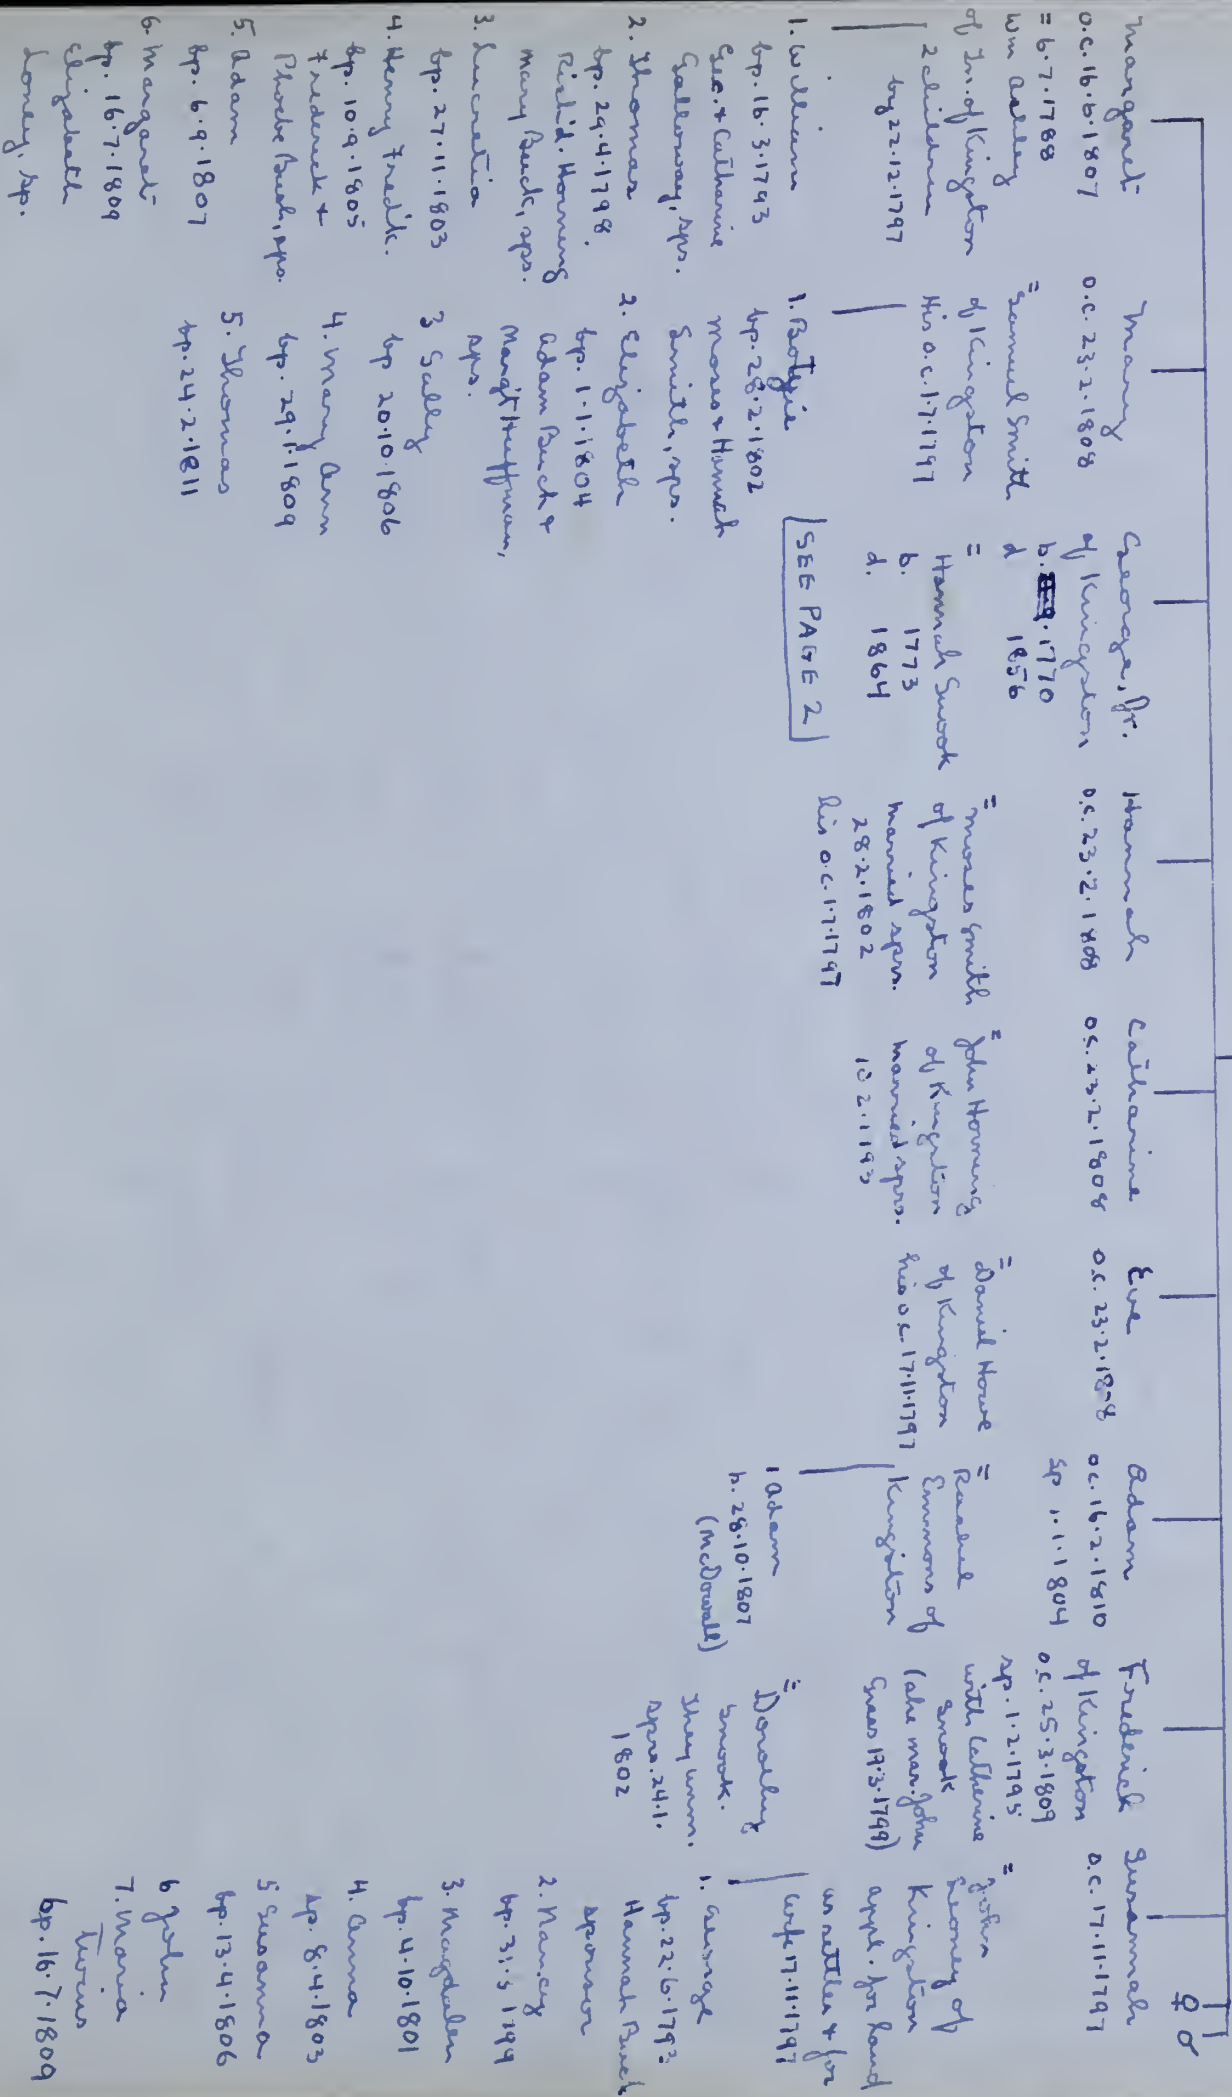 Margaret
O.C. 16.6.1807
= 6.7.1788
Wm Ashley
of Tn. of Kingston
2 children
by 22.12.1797
1. William
bp. 16.3.1793
Geo. & Catharine
Galloway, sps.
2. Thomas
bp. 24.4.1798.
Rich'd. Horning
Mary Buck, sps.
3. Lucretia
bp. 27.11.1803
4. Henry Fredk.
bp. 10.9.1805
Frederick &
Phoebe Buck, sps.
5. Adam
bp. 6.9.1807
6. Margaret
bp. 16.7.1809
Elizabeth
Loney, sp.
Mary
O.C. 23.2.1808
=
Samuel Smith
of Kingston
His O.C. 1.7.1797
1.
bp. 28.2.1802
Moses & Hannah
Smith, sps.
2. Elizabeth
bp. 1.1.1804
Adam Buck &
Margt Huffman,
sps.
3 Sally
bp 20.10.1806
4. Mary Ann
bp. 29.1.1809
5. Thomas
bp. 24.2.1811
George, Jr.
of Kingston
b. 1770
d 1856
=
Hannah Snook
b. 1773
d. 1864
SEE PAGE 2
Hannah
O.C. 23.2.1808
=
Moses Smith
of Kingston
married sprs.
28.2.1802
his O.C. 1.7.1797
Catharine
O.C. 23.2.1808
=
John Horning
of Kingston
married sprs.
10 2.1793
Eve
O.C. 23.2.1808
=
Daniel Howe
of Kingston
his O.C. 17.11.1797
Adam
O.C. 16.2.1810
Sp 1.1.1804
=
Rachel
Emmons of
Kingston
1 Adam
b. 28.10.1807
(McDowall)
Frederick
of Kingston
O.C. 25.3.1809
sp. 1.2.1795
with Catherine
Snook
(she mar. John
Grass 17.3.1799)
=
Dorothy
Snook.
They unm.
sprs. 24.1.
1802
Susannah
O.C. 17.11.1797
=
John
Looney of
Kingston
appl. for land
as settler & for
wife 17.11.1797
1. George
bp. 22.6.1793
Hannah Buck
sponsor
2. Nancy
bp. 31.3 1799
3. Magdalen
bp. 4.10.1801
4. Anna
bp. 8.4.1803
5 Susanna
bp. 13.4.1806
6 John
7. Maria
Twins
bp. 16.7.1809
♀ ♂